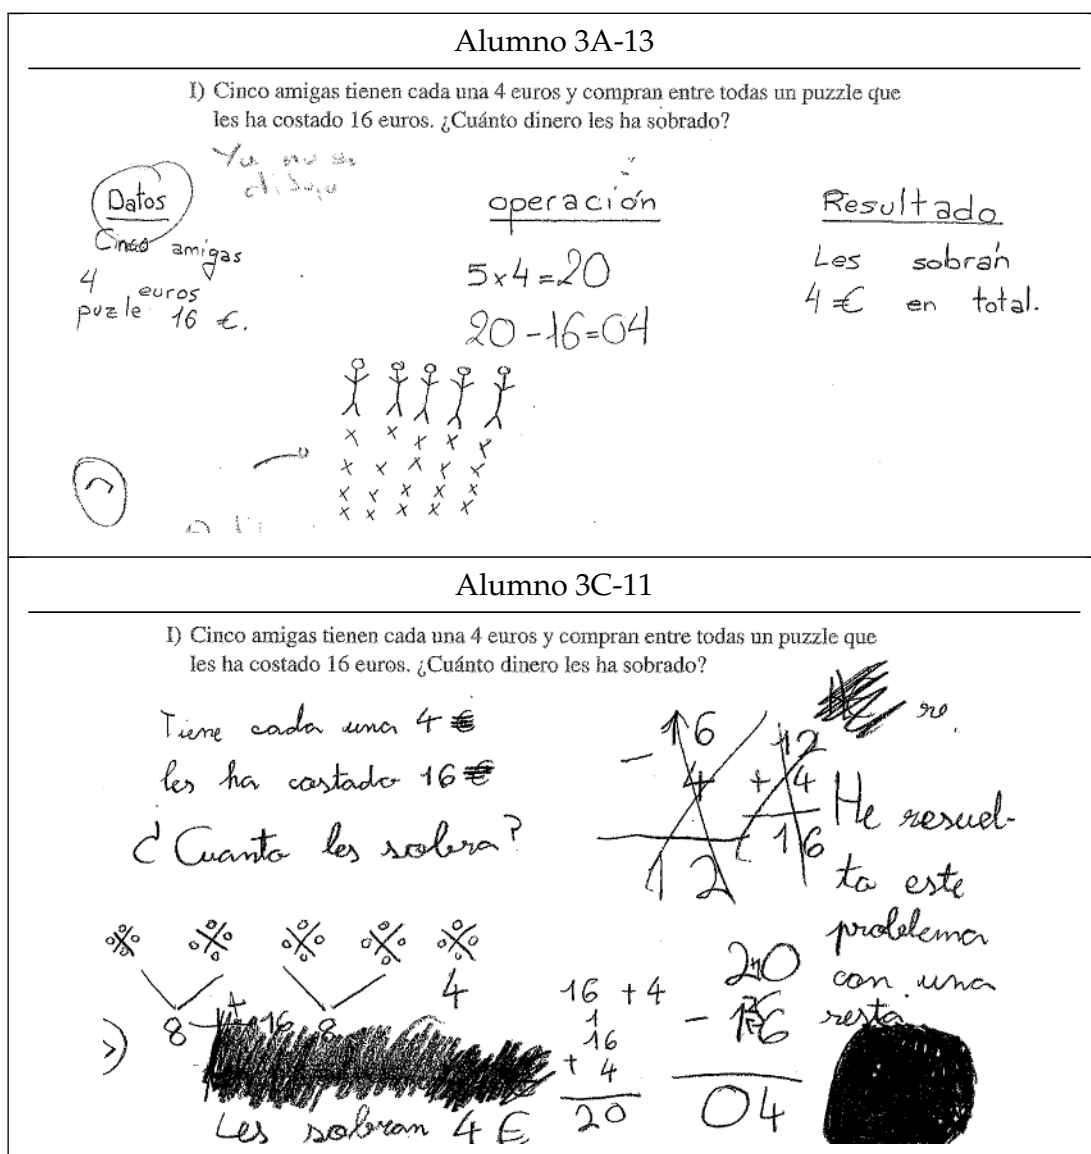 Alumno 3A-13
I) Cinco amigas tienen cada una 4 euros y compran entre todas un puzzle que
les ha costado 16 euros. ¿Cuánto dinero les ha sobrado?
Datos
Cinco amigas
4 euros
puzle 16 €.
operación
5x4=20
20-16=04
Resultado
Les sobrán
4€ en total.
Alumno 3C-11
I) Cinco amigas tienen cada una 4 euros y compran entre todas un puzzle que
les ha costado 16 euros. ¿Cuánto dinero les ha sobrado?
Tiene cada una 4 €
les ha costado 16 €
¿Cuanto les sobra?
4
8 + 8
16
Les sobran 4 €
16
- 4
12
12
+ 4
16
16 + 4
1
16
+ 4
20
20
- 16
04
re.
He resuel-
ta este
problema
con una
resta